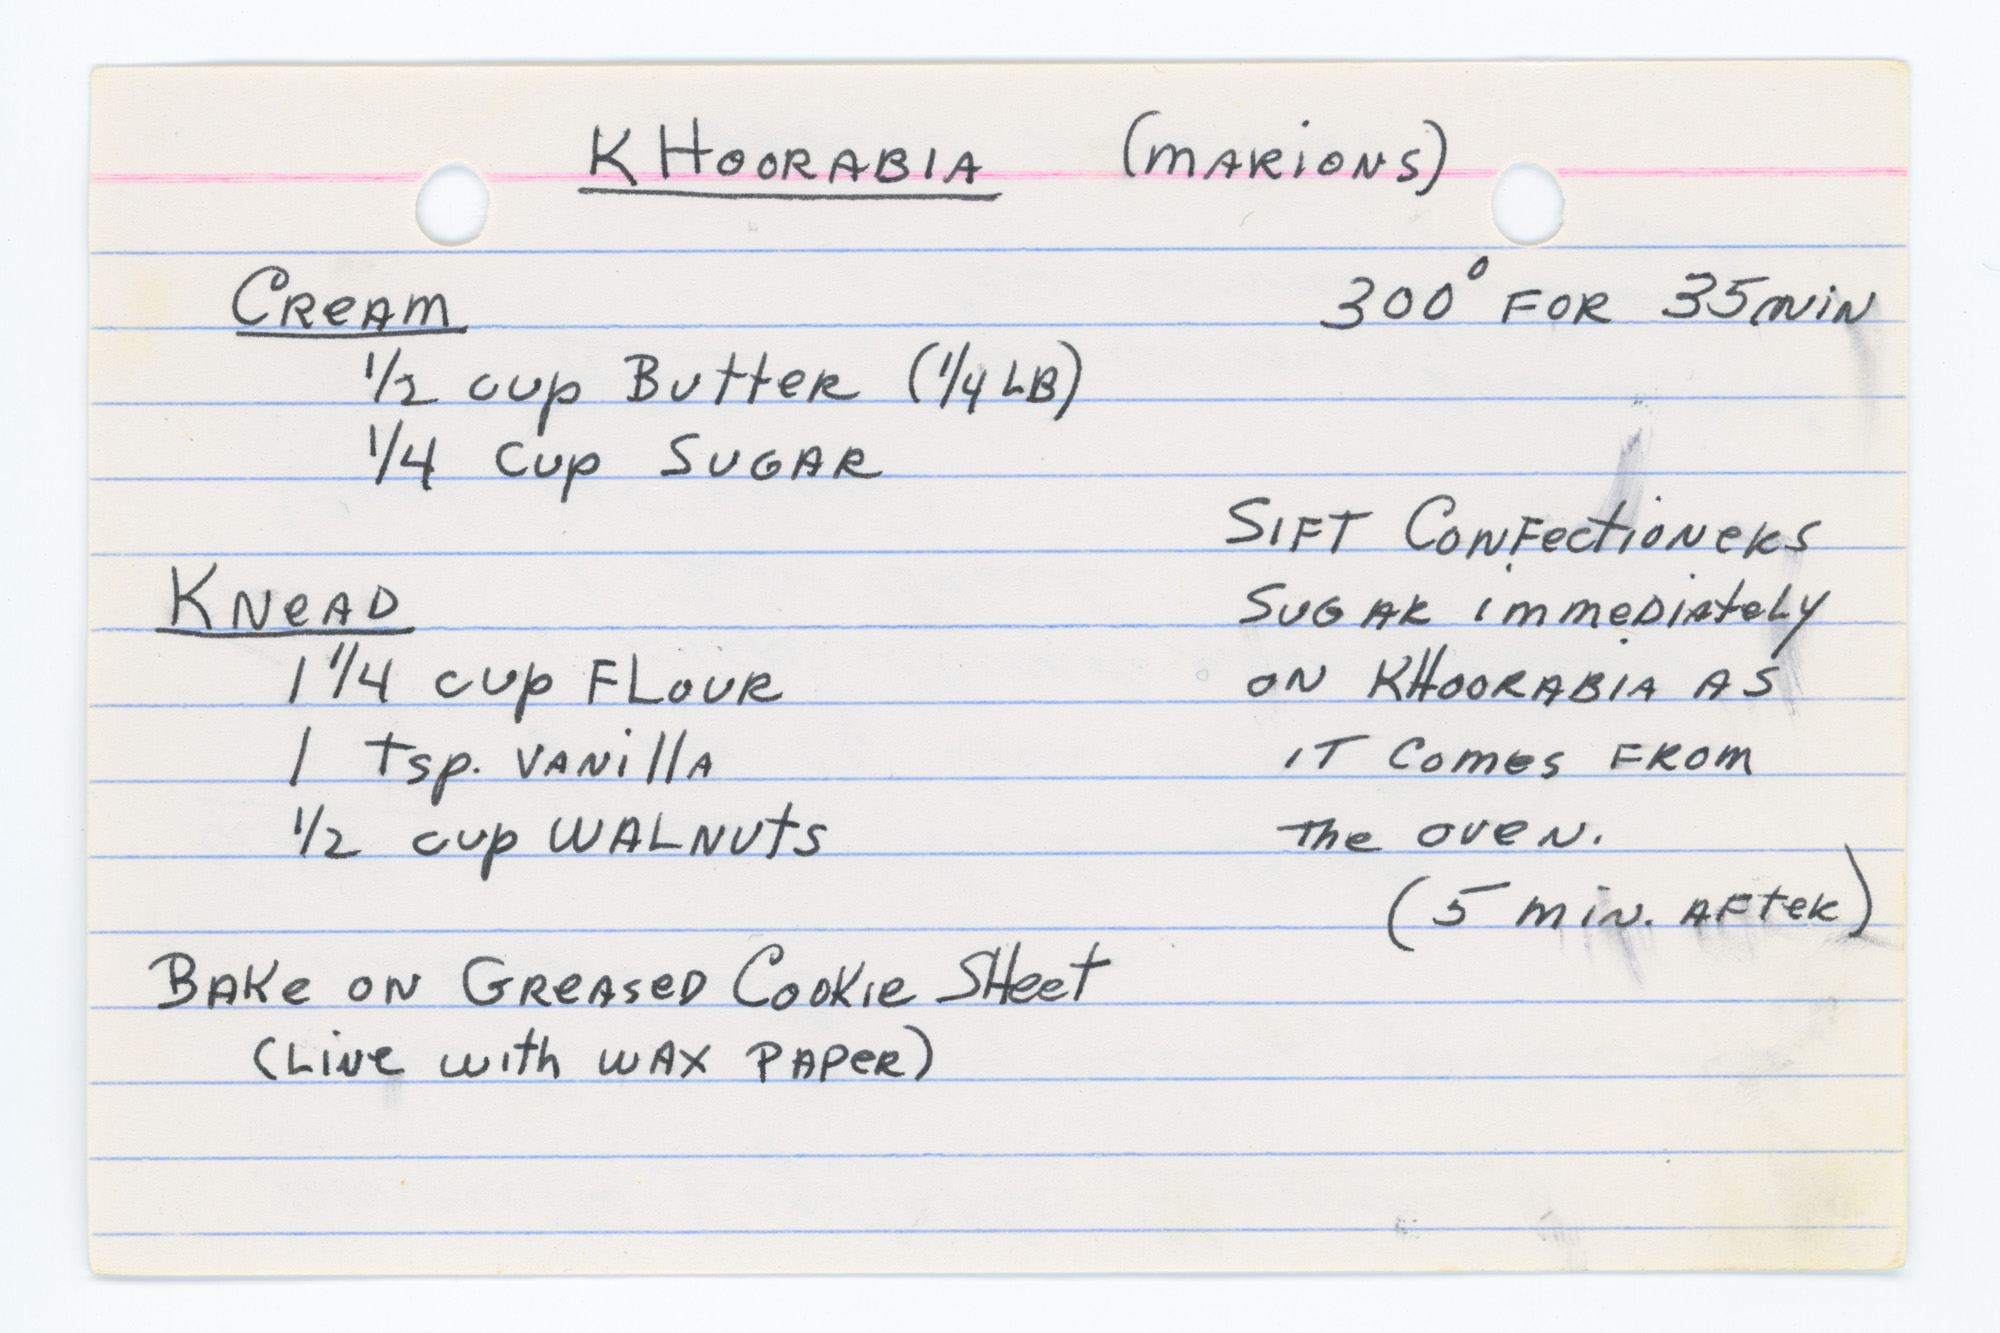 KHOORABIA (MARIONS)
CREAM
300° FOR 35 MIN
1/2 cup Butter (1/4 LB)
1/4 cup SUGAR
SIFT CONFectioneRs
KNeAD
SUGAR immeDiAteLy
1 1/4 cup FLouR
ON KHOORABIA AS
1 tsp. VANillA
IT comes FROM
1/2 cup WALNUts
The oveN.
(5 miN. AFteR)
BAKe ON GReAseD Cookie SHeet
(LiNe with WAX PAPeR)